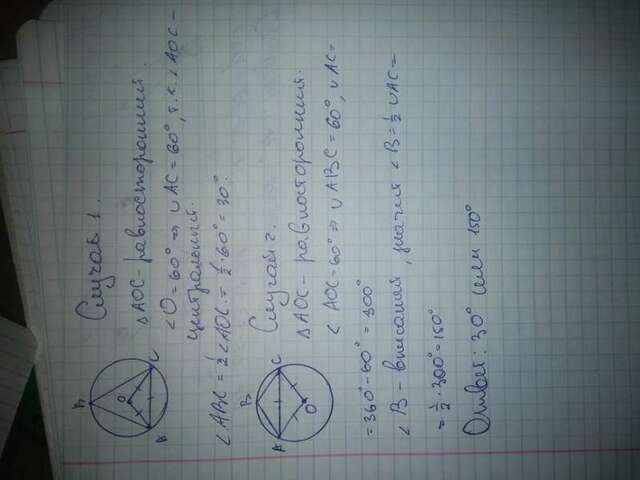 Случай 1.
△AOC - равносторонний.
∠O=60° ⇒ ∪AC = 60°, т.к. ∠AOC -
центральный.
∠ABC = 1/2 ∠AOC = 1/2 · 60° = 30°
B
O
A
C
Случай 2.
△AOC - равносторонний.
∠AOC = 60° ⇒ ∪ABC = 60°, ∪AC =
= 360° - 60° = 300°
∠B - вписаный, значит ∠B = 1/2 ∪AC =
= 1/2 · 300° = 150°
B
A
C
O
Ответ: 30° или 150°